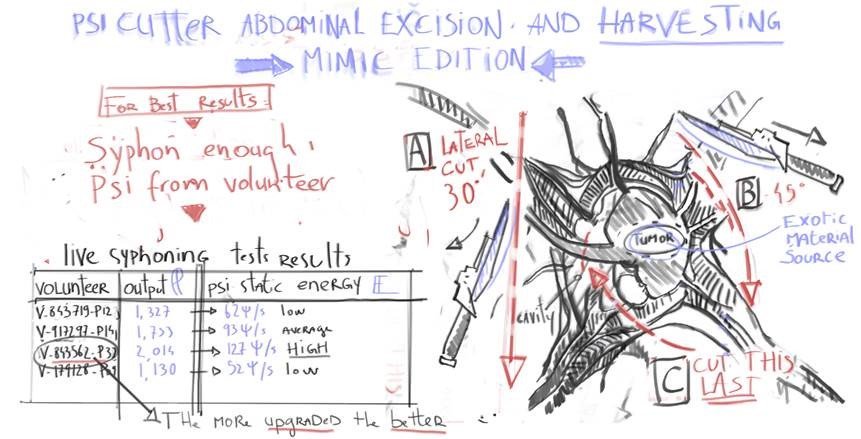 PSI CUTTER ABDOMINAL EXCISION AND HARVESTING
MIMIC EDITION
FOR BEST RESULTS:
Syphon enough
Psi from volunteer
live syphoning tests results
VOLUNTEER output psi static energy E
V-843719-P12 1,327 62Ψ/s low
1,733 93Ψ/s AVERAGE
V-843562-P37 2,014 127Ψ/s HIGH
1,130 52Ψ/s low
THE MORE upgraded the better
A LATERAL
CUT
30°
B 45°
TUMOR
EXOTIC
MATERIAL
SOURCE
CAVITY
C CUT THIS
LAST